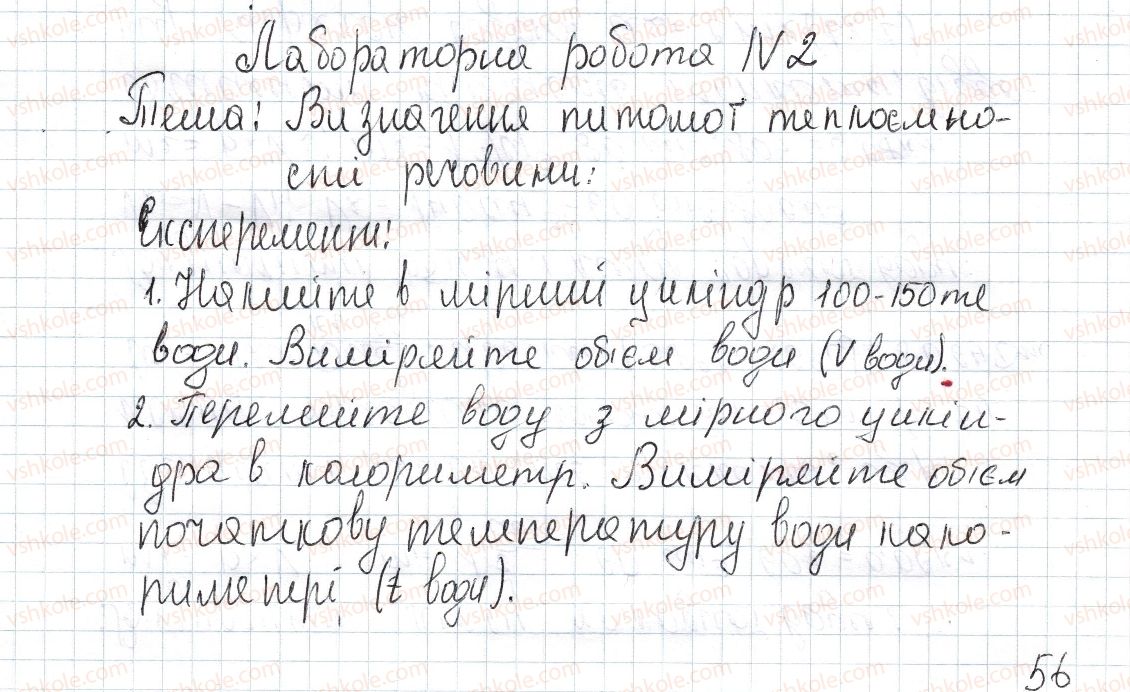 Лабораторна робота N 2
Тема: Визначення питомої теплоємно-
сті речовини:
Експеремент:
1. Налийте в мірний циліндр 100-150 мл
води. Виміряйте обієм води (V води).
2. Перелийте воду з мірного цилін-
дра в калориметр. Виміряйте обієм
початкову температуру води кало-
риметрі (t води).
56